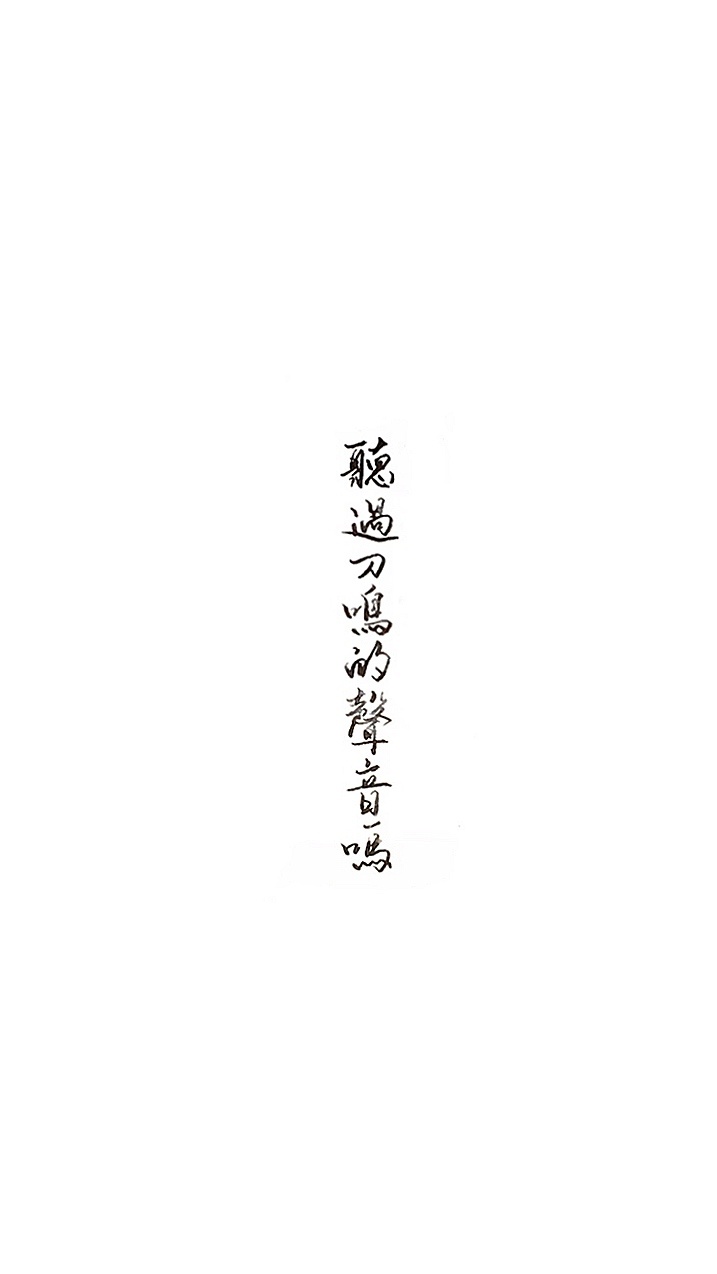 聽過刀鳴的聲音嗎